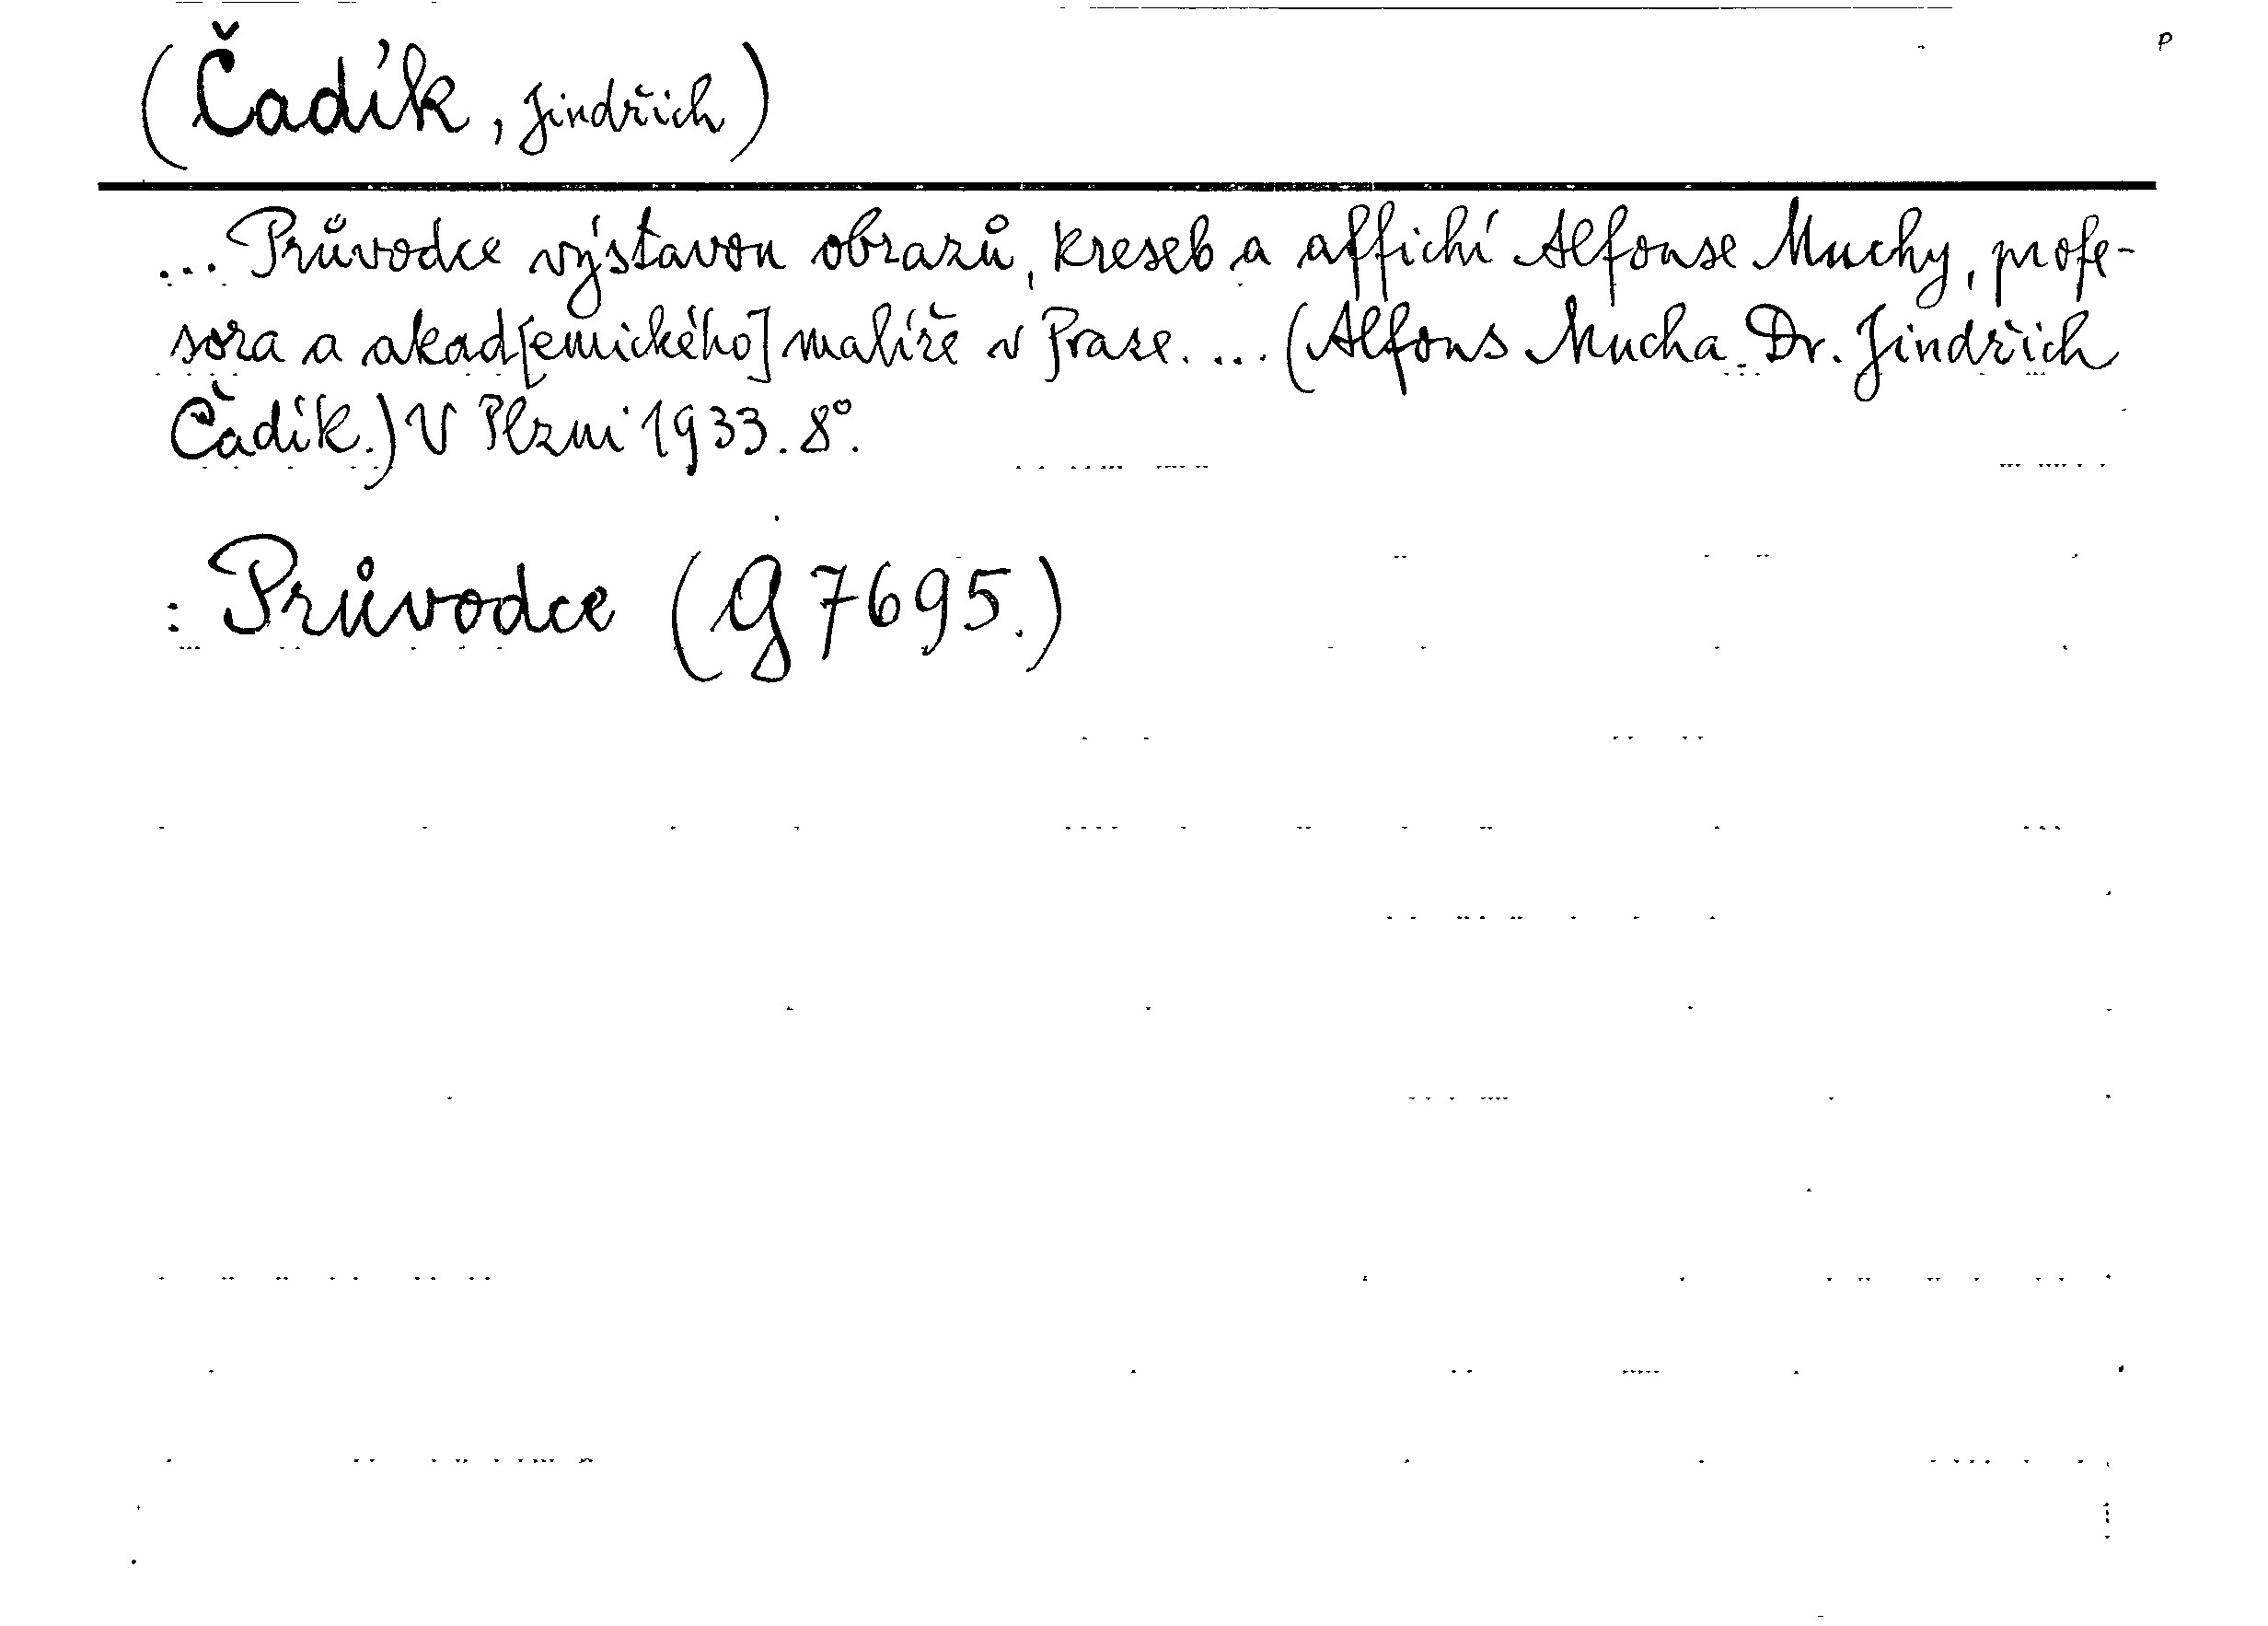 P
(Čadík, Jindřich)
... Průvodce výstavou obrazů, kreseb a affichí Alfonse Muchy, profe-
sora a akad[emického] malíře v Praze. ... (Alfons Mucha. Dr. Jindřich
Čadík.) V Plzni 1933. 8°.
: Průvodce (G 7695.)